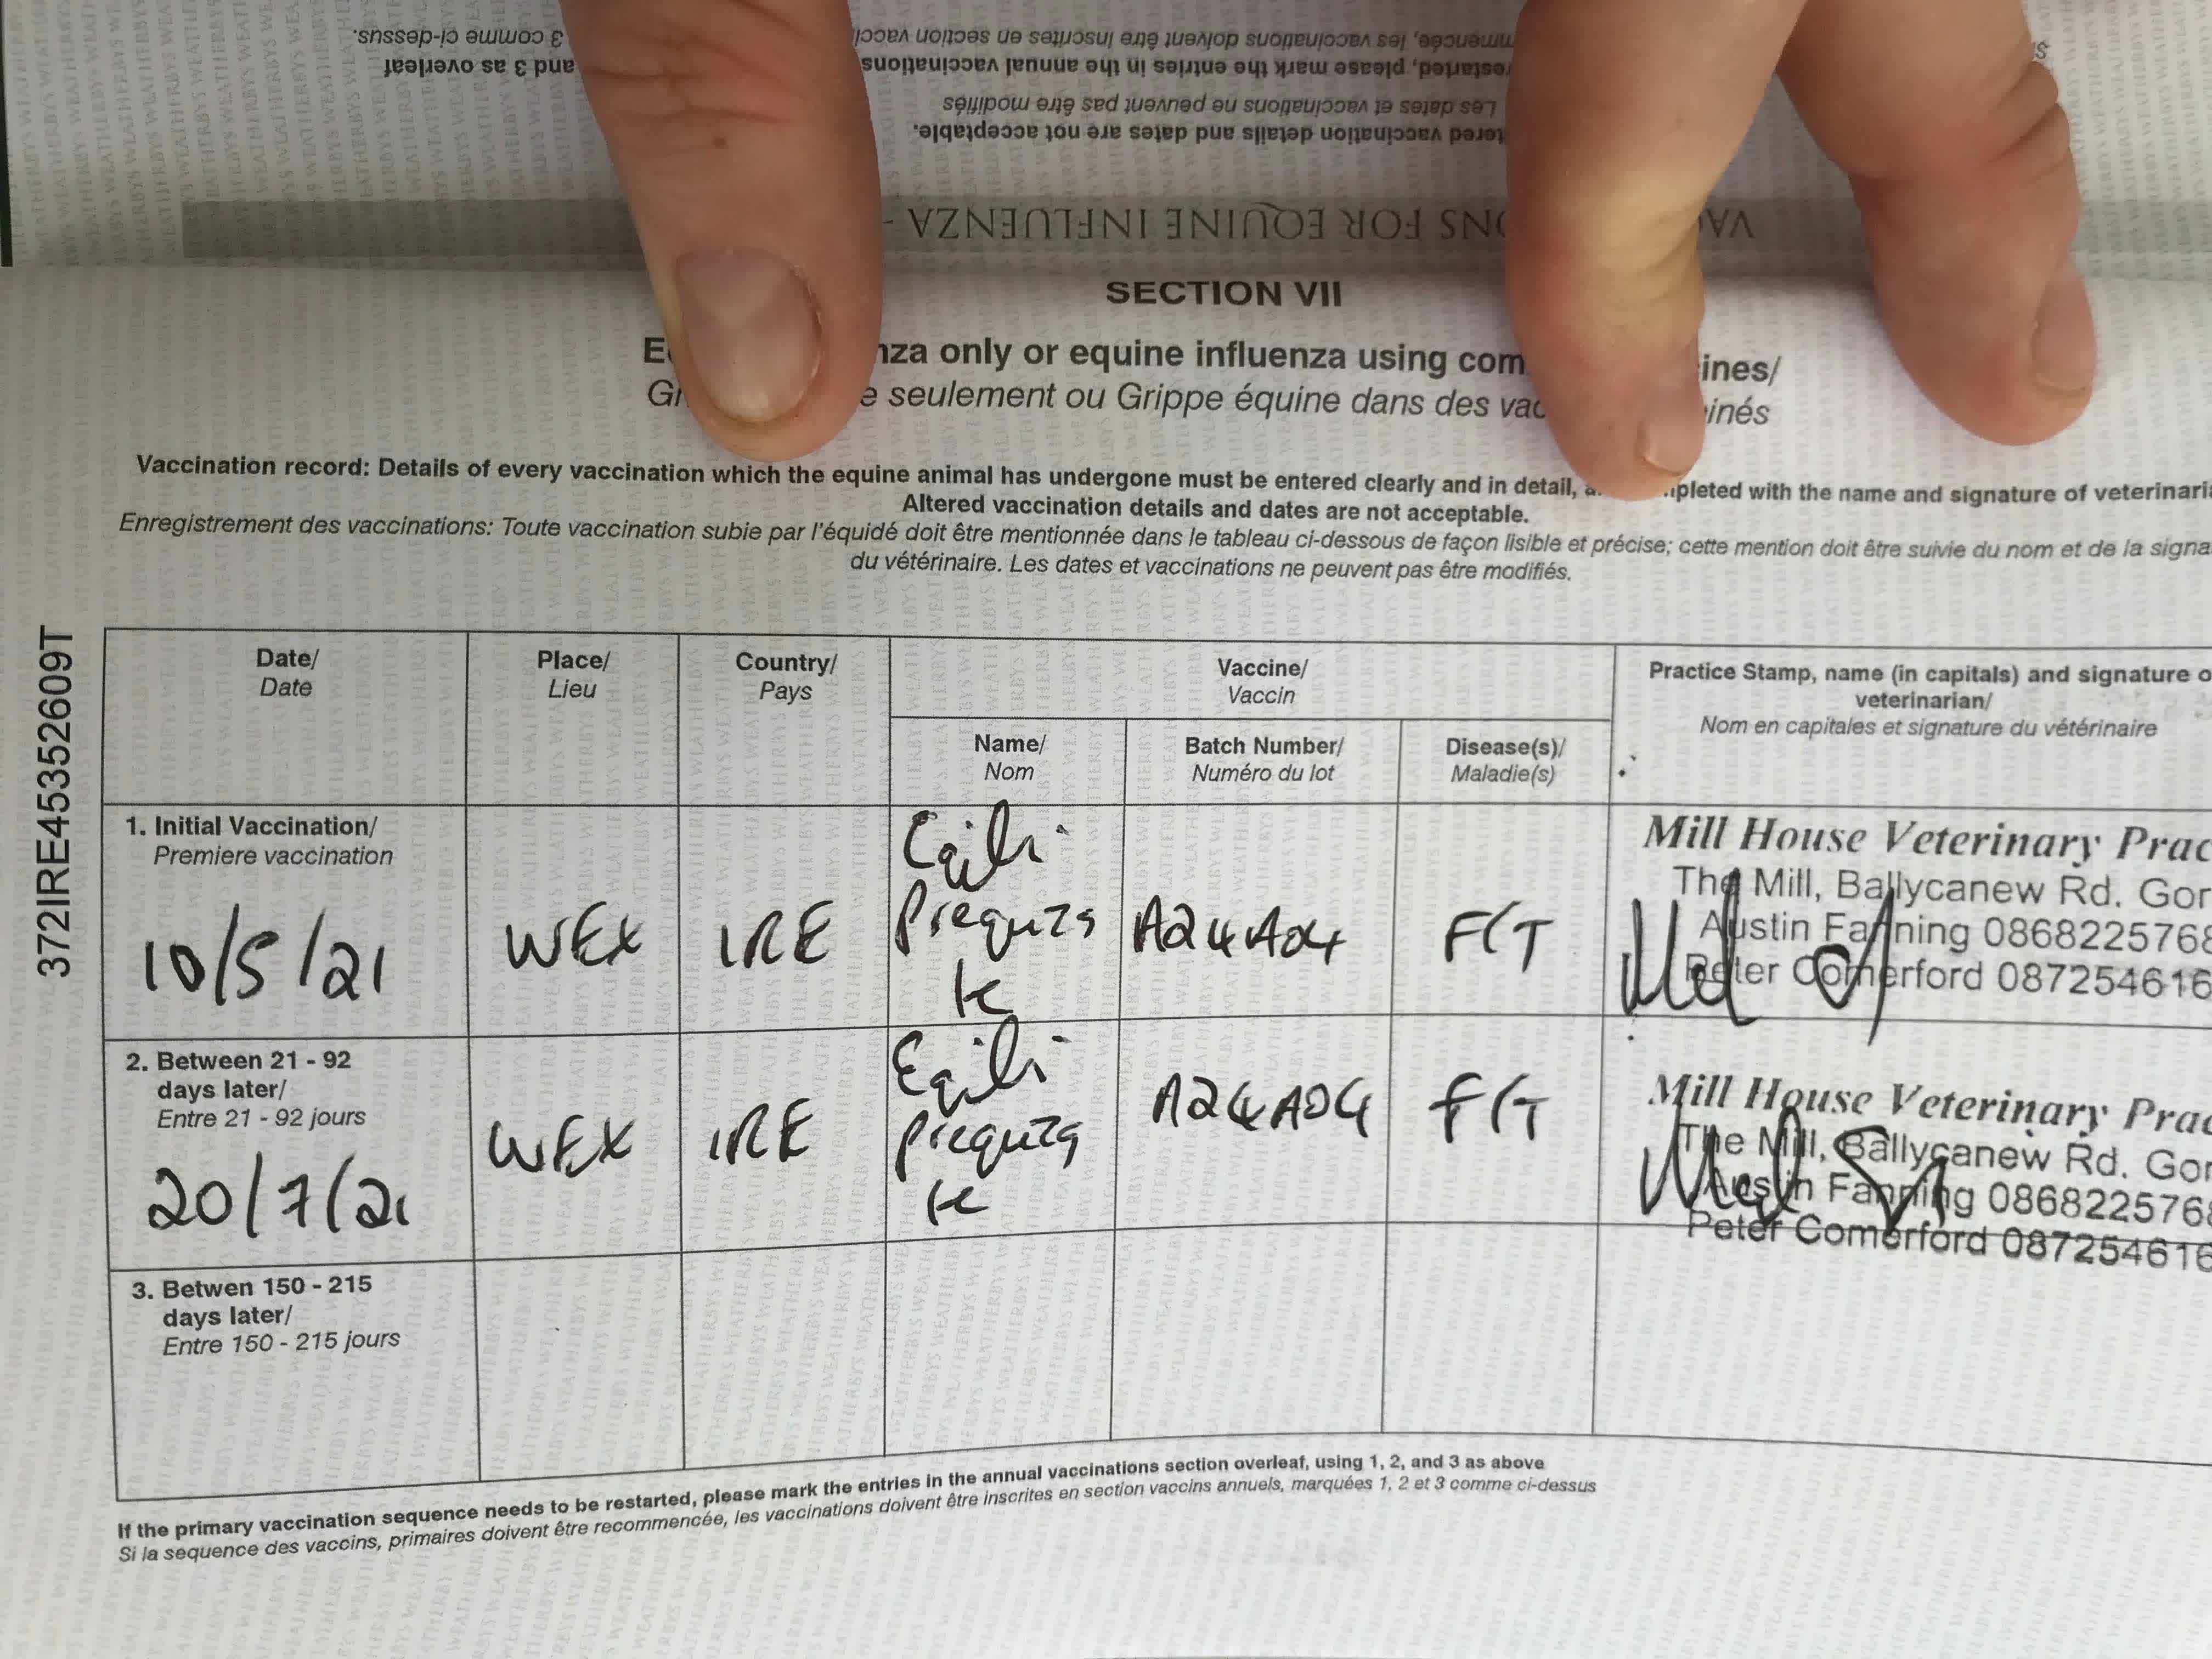 3 comme ci-dessus.
mmencée, les vaccinations doivent être inscrites en section
and 3 as overleaf
please mark the entries in the annual vaccinations
Les dates et vaccinations ne peuvent pas être modifiés
vaccination details and dates are not acceptable.
FOR EQUINE INFLUENZA -
SECTION VII
only or equine influenza using
seulement ou Grippe équine dans des
Vaccination record: Details of every vaccination which the equine animal has undergone must be entered clearly and in detail, with the name and signature of
Altered vaccination details and dates are not acceptable.
Enregistrement des vaccinations: Toute vaccination subie par l'équidé doit être mentionnée dans le tableau ci-dessous de façon lisible et précise; cette mention doit être suivie du nom et de la
du vétérinaire. Les dates et vaccinations ne peuvent pas être modifiés.
372IRE45352609T
Date/
Date
Place/
Lieu
Country/
Pays
Vaccine/
Vaccin
Name/
Nom
Batch Number/
Numéro du lot
Disease(s)/
Maladie(s)
Practice Stamp, name (in capitals) and signature
veterinarian/
Nom en capitales et signature du vétérinaire
1. Initial Vaccination/
Premiere vaccination
10/5/21
WEX
IRE
Prequza
te
A24A04
F/T
Mill House Veterinary
The Mill, Ballycanew Rd.
Austin Fanning 0868225768
Peter Comerford 087254616
2. Between 21 - 92
days later/
Entre 21 - 92 jours
20/7/21
WEX
IRE
Eqili
Prequza
te
A24A04
F/T
Mill House Veterinary
The Mill, Ballycanew Rd.
Austin Fanning 086822576
Peter Comerford 087254616
3. Betwen 150 - 215
days later/
Entre 150 - 215 jours
If the primary vaccination sequence needs to be restarted, please mark the entries in the annual vaccinations section overleaf, using 1, 2, and 3 as above
Si la sequence des vaccins, primaires doivent être recommencée, les vaccinations doivent être inscrites en section vaccins annuels, marquées 1, 2 et 3 comme ci-dessus